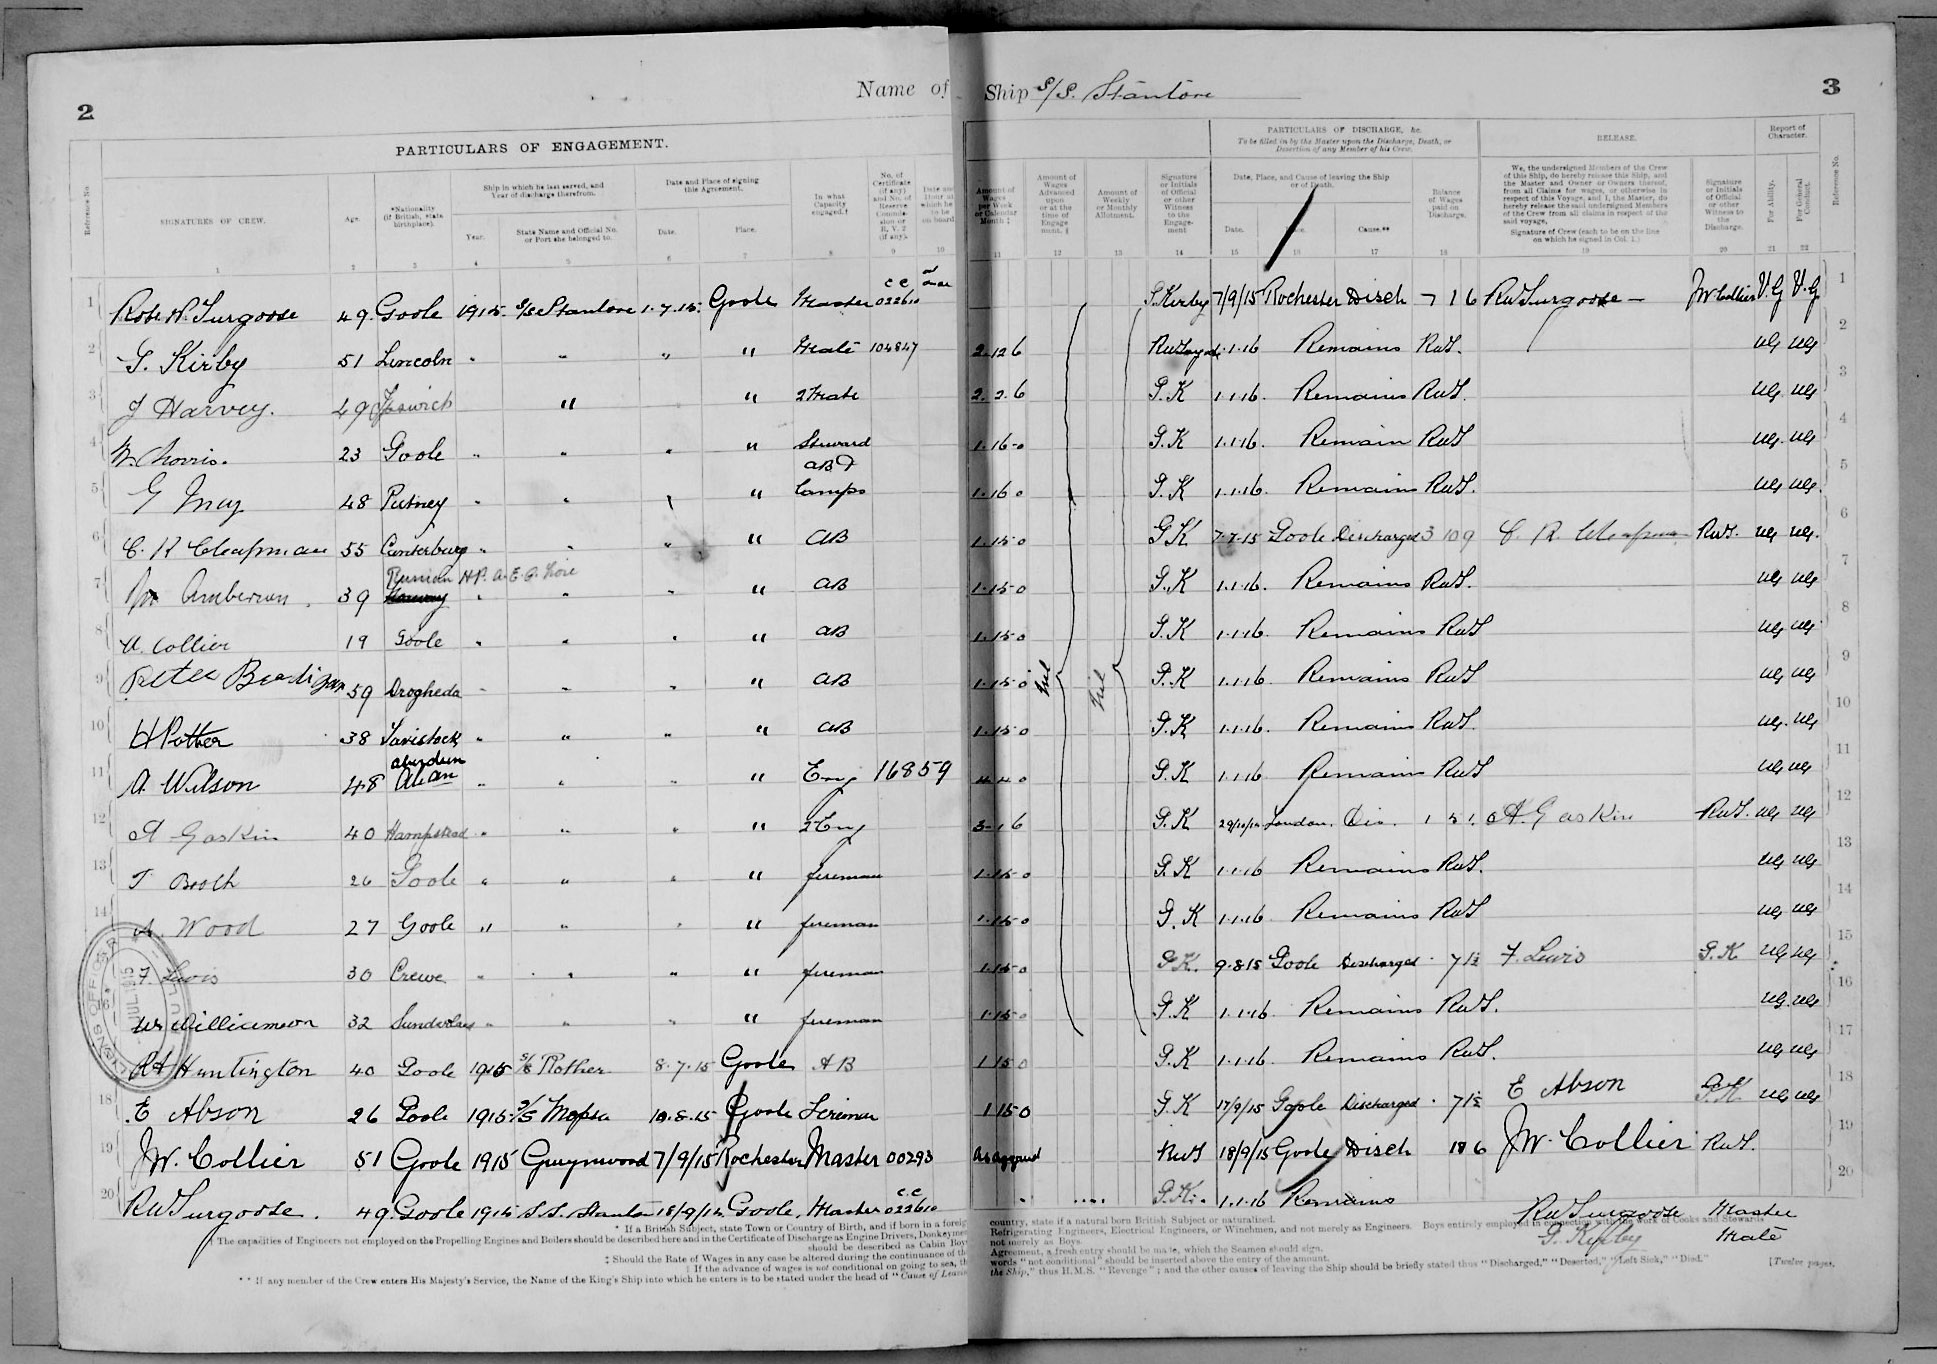 2
Name of Ship S/S. Stanlore
3
PARTICULARS OF ENGAGEMENT.
PARTICULARS OF DISCHARGE, &c.
To be filled in by the Master upon the Discharge, Death, or Desertion of any Member of his Crew.
RELEASE.
Report of Character.
Reference No.
SIGNATURES OF CREW.
Age.
*Nationality (if British, state birthplace).
Ship in which he last served, and Year of discharge therefrom.
Year.
State Name and Official No. or Port she belonged to.
Date and Place of signing this Agreement.
Date.
Place.
In what Capacity engaged.†
No. of Certificate (if any) and No. of Reserve Commission or R. V. 2 (if any).
Amount of Wages per Week or Calendar Month ‡
Amount of Wages Advanced upon or at the time of Engagement. §
Amount of Weekly or Monthly Allotment.
Signature or Initials of Official or other Witness to the Engagement
Date, Place, and Cause of leaving the Ship or of Death.
Date.
Cause.**
Balance of Wages paid on Discharge.
We, the undersigned Members of the Crew of this Ship, do hereby release this Ship, and the Master and Owner or Owners thereof, from all Claims for wages, or otherwise in respect of this Voyage, and I, the Master, do hereby release the said undersigned Members of the Crew from all claims in respect of the said voyage.
Signature of Crew (each to be on the line on which he signed in Col. 1.)
Signature or Initials of Official or other Witness to the Discharge.
For Ability.
For General Conduct.
Reference No.
1 2 3 4 5 6 7 8 9 10 11 12 13 14 15 16 17 18 19 20 21 22
1 Robt W. Surgoose 49. Goole 1915 S/S Stanlore 1.7.15. Goole Master C C 022610 G. Kirby 7/9/15 Rochester Disch 7 1 6 RW Surgoose JW Collier V.G V.G 1
2 G. Kirby 51 Lincoln " " " " Mate 104847 2.12 6 1.1.16 Remains RWS. VG VG 2
3 J Harvey. 49 Ipswich " " 2 Mate 2.2.6 G.K 1.1.16. Remains RWS. VG. VG. 3
4 W. Norris. 23 Goole " " " " Steward 1.16.0 G.K 1.1.16. Remain RWS VG. VG. 4
5 G May 48 Putney " " " AB & Lamps 1.16 0 G.K 1.1.16. Remains RWS. VG VG. 5
6 C. R Chapman 55 Canterbury " " " " AB 1.15.0 G K 7.7.15 Goole Discharged 3 10 9 C. R. Chapman RWS. VG VG. 6
7 Amberman 39 Russian H.P. A.E.G. " " " " AB 1.15.0 G.K 1.1.16. Remains RWS. VG VG 7
8 Collier 19 Goole " " " " AB 1.15.0 G.K 1.1.16. Remains RWS VG VG 8
9 Peter Bradigan 59 Drogheda " " " " AB 1.15.0 Nil Nil G.K 1.1.16. Remains RWS VG VG 9
10 H Potter 38 Tavistock " " " " AB 1.15.0 G.K 1.1.16. Remains RWS. VG. VG 10
11 A. Wilson 48 Aberdeen " " " " Eng 16859 4.4.0 G.K 1.1.16 Remains RWS VG VG 11
12 A Gaskin 40 Hampstead " " " " 2 Eng 3-1 6 G.K London. Dis. A. Gaskin RWS. VG VG 12
13 T Booth 26 Goole " " " " fireman 1.15.0 G.K 1.1.16 Remains RWS. VG VG 13
14 A. Wood 27 Goole " " " " fireman 1.15.0 G.K 1.1.16. Remains RWS VG VG 14
15 F. Lewis 30 Crewe " " " " fireman 1.15.0 G.K. 9.8.15 Goole Discharged 7 1½ F. Lewis G.K VG VG 15
16 Wm Williamson 32 Sunderland " " " " fireman 1.15.0 G.K 1.1.16. Remains RWS. VG. VG 16
17 Huntington 40 Goole 1915 S/S Rother 8.7.15 Goole AB 1 15 0 G.K 1.1.16. Remains RWS. VG VG 17
18 E Abson 26 Goole 1915 S/S Mopsa 10.8.15 Goole Fireman 1 15 0 G.K 17/9/15 Goole Discharged 7 1½ E Abson G.K VG VG 18
19 JW. Collier 51 Goole 1915 Gwynwood 7/9/15 Rochester Master 00293 As agreed RWS 18/9/15 Goole Disch 18 6 JW. Collier RWS. 19
20 RW Surgoose. 49. Goole 1915 S.S. Stanlore 18/9/15 Goole. Master C.C 022610 " G.K. 1.1.16 Remains 20
RW Surgoose Master
G. Kirby Mate
* If a British Subject, state Town or Country of Birth, and if born in a foreign country, state if a natural born British Subject or naturalised.
† The capacities of Engineers not employed on the Propelling Engines and Boilers should be described here and in the Certificate of Discharge as Engine Drivers, Donkeymen, Refrigerating Engineers, Electrical Engineers, or Winchmen, and not merely as Engineers. Boys entirely employed in connection with the work of Cooks and Stewards should be described as Cabin Boys not merely as Boys.
‡ Should the Rate of Wages in any case be altered during the continuance of the Agreement, a fresh entry should be made, which the Seamen should sign.
§ If the advance of wages is not conditional on going to sea, the words "not conditional" should be inserted above the entry of the amount.
** If any member of the Crew enters His Majesty's Service, the Name of the King's Ship into which he enters is to be stated under the head of "Cause of Leaving the Ship," thus H.M.S. "Revenge"; and the other causes of leaving the Ship should be briefly stated thus "Discharged," "Deserted," "Left Sick," "Died."
[Twelve pages.